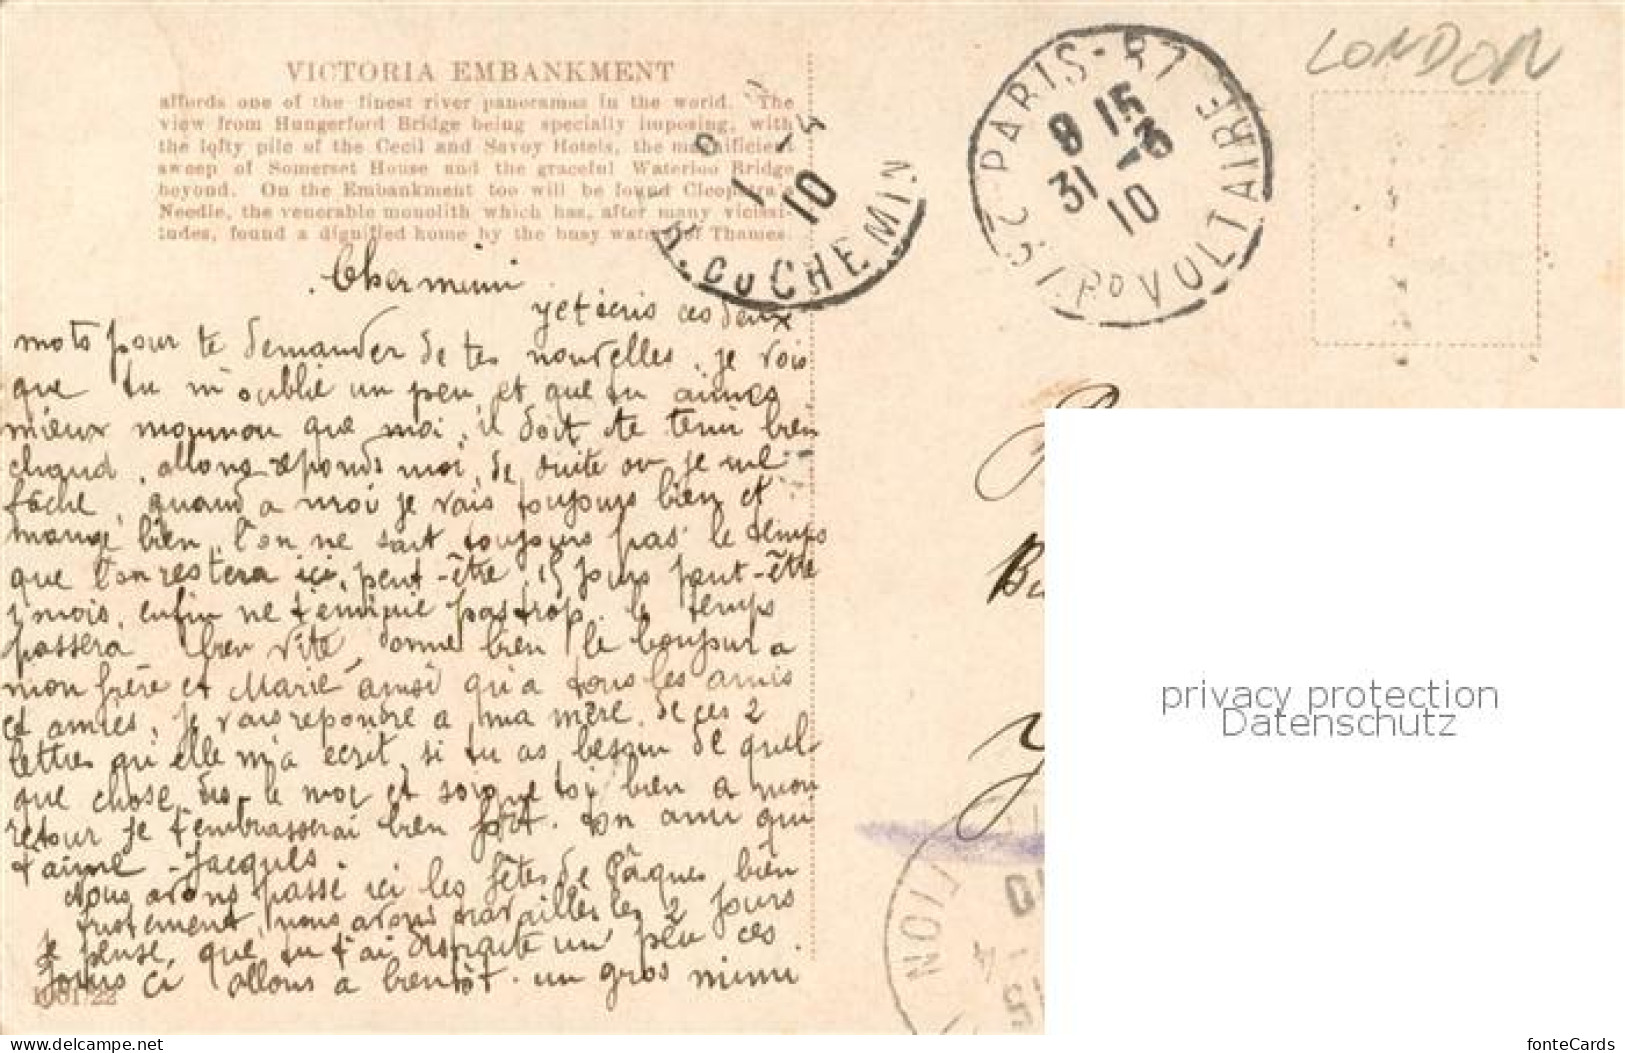 LONDON
VICTORIA EMBANKMENT
affords one of the finest river panoramas in the world. The
view from Hungerford Bridge being specially imposing, with
the lofty pile of the Cecil and Savoy Hotels, the magnificient
sweep of Somerset House and the graceful Waterloo Bridge
beyond. On the Embankment too will be found Cleopatra's
Needle, the venerable monolith which has, after many vicissi-
tudes, found a dignified home by the busy water of Thames.
PARIS-57
25 R DU CHEMIN
10
25-PARIS-
8 15
31 -3
10
Bd VOLTAIRE
Cher mimi
je t écris ces deux
mots pour te demander de tes nouvelles, je vois
que tu m'oublie un peu, et que tu aimes
mieux que moi, il doit te tenir bien
chaud, allons réponds moi de suite ou je me
fâche, quand a moi je vais toujours bien et
mange bien, l'on ne sait toujours pas le temps
que l'on restera ici, peut-être 15 jours peut-être
1 mois, enfin ne t'ennuie pas trop, le temps
passera bien vite, donne bien le bonjour a
mon frère et Marie ainsi qu'a tous les amis
et amies, je vais repondre a ma mère de ces 2
lettres qu'elle m'a ecrit, si tu as besoin de quel
que chose dis-le moi et soigne toi bien a mon
retour je t'embrasserai bien fort. ton ami qui
t'aime - Jacques.
Nous avons passé ici les fêtes de Pâques bien
tristement, nous avons travailles les 2 jours
je pense, que tu t'ai distraite un peu ces
jours ci allons a bientôt. un gros mimi
1061/22
privacy protection
Datenschutz
fonteCards
delcampe.net